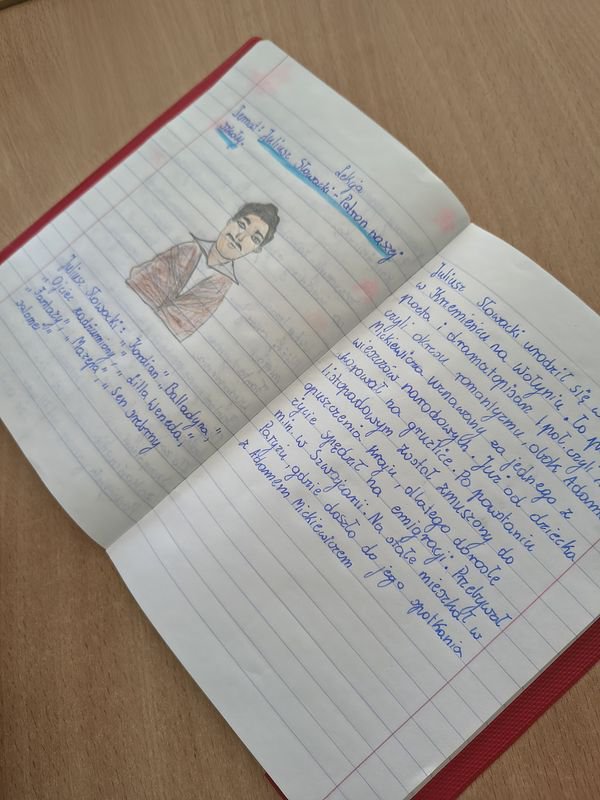 Lekcja
Temat: Juliusz Słowacki - Patron naszej
szkoły.
Juliusz Słowacki: "Kordian", "Balladyna",
"Ojciec zadżumionych", "Lilla Weneda",
"Fantazy", "Mazepa", "Sen srebrny
salomei"
Juliusz Słowacki urodził się w
w Krzemieńcu na Wołyniu. To
poeta i dramatopisarz I poł.
czyli okresu romantyzmu, obok Adama
Mickiewicza uznawany za jednego z
wieszczów narodowych. Już od dziecka
chorował na gruźlicę. Po powstaniu
listopadowym został zmuszony do
opuszczenia kraju, dlatego dorosłe
życie spędził na emigracji. Przebywał
m.in. w Szwajcarii. Na stałe mieszkał w
Paryżu, gdzie doszło do jego spotkania
z Adamem Mickiewiczem